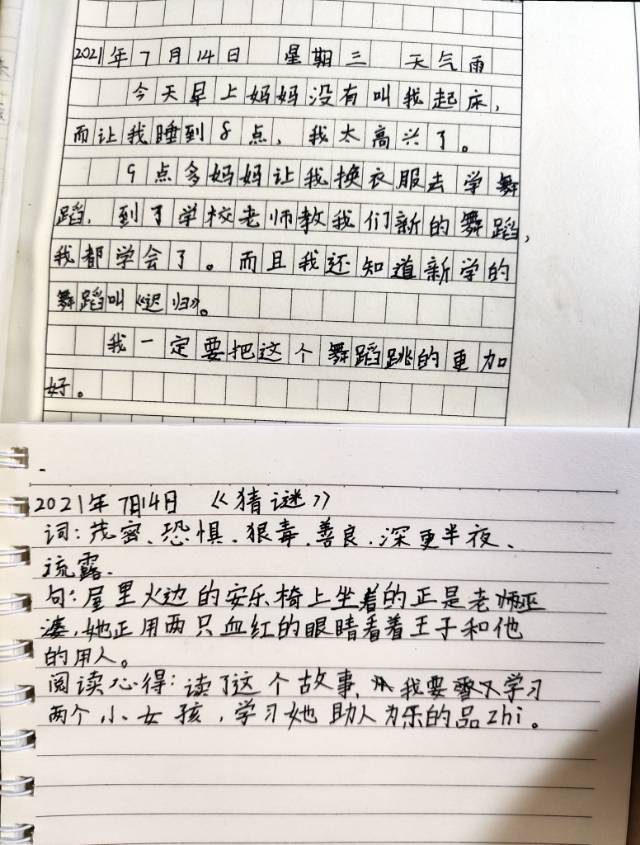 2021年7月14日 星期三 天气雨
今天早上妈妈没有叫我起床，
而让我睡到8点，我太高兴了。
9点多妈妈让我换衣服去学舞
蹈，到了学校老师教我们新的舞蹈，
我都学会了。而且我还知道新学的
舞蹈叫《迟归》。
我一定要把这个舞蹈跳的更加
好。
2021年7月14日 《猜谜》
词：茂密、恐惧、狠毒、善良、深更半夜、
流露、
句：屋里火边的安乐椅上坐着的正是老巫
婆，她正用两只血红的眼睛看着王子和他
的用人。
阅读心得：读了这个故事，我要学习
两个小女孩，学习她助人为乐的品zhi。